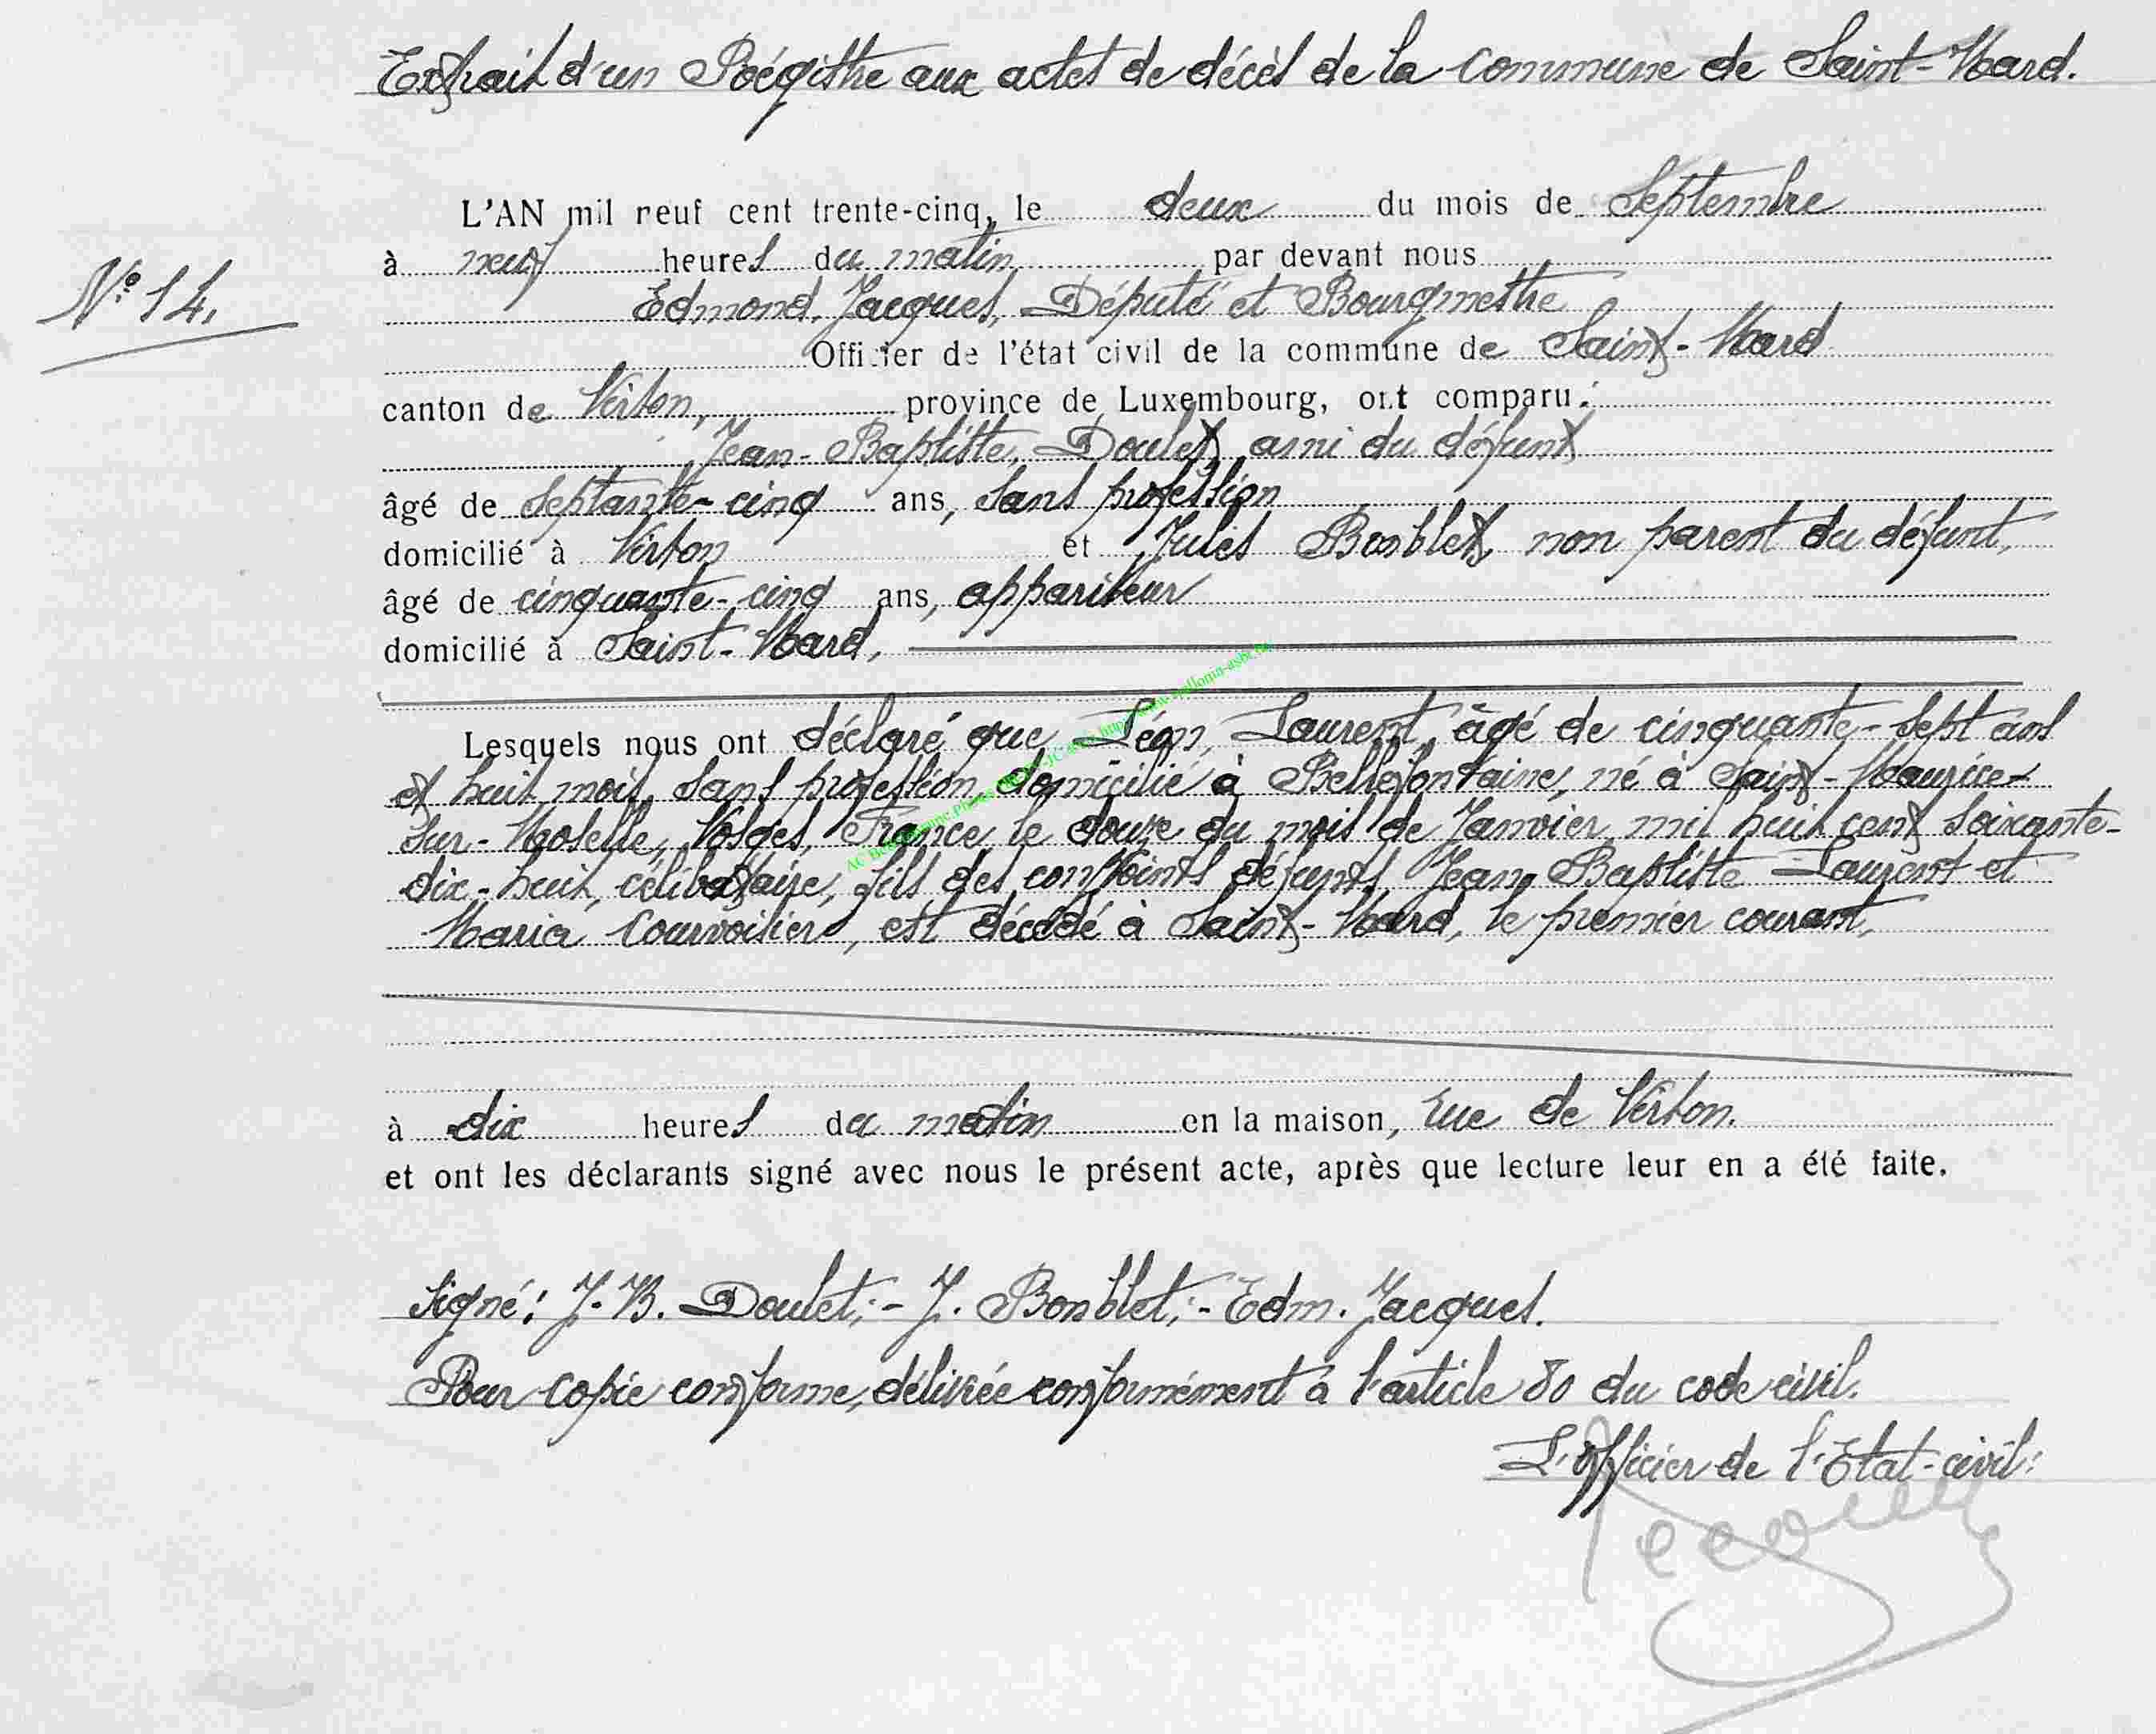 Extrait d'un Régistre aux actes de décès de la Commune de Saint-Mard.
L'AN mil neuf cent trente-cinq, le deux du mois de Septembre
N° 14.
à neuf heures du matin par devant nous
Edmond, Jacques, Député et Bourgmestre
Officier de l'état civil de la commune de Saint-Mard
canton de Virton, province de Luxembourg, ont comparu :
Jean-Baptiste, Doulet, ami du défunt
âgé de septante-cinq ans, sans profession
domicilié à Virton et Jules Bonblet, non parent du défunt,
âgé de cinquante-cinq ans, appariteur
domicilié à Saint-Mard,
Lesquels nous ont déclaré que Léon, Laurent, âgé de cinquante-sept ans
et huit mois, sans profession, domicilié à Bellefontaine, né à Saint-Maurice-
sur-Moselle, Vosges, France, le douze du mois de Janvier mil huit cent soixante-
dix-huit, célibataire, fils des conjoints défunts, Jean Baptiste Laurent et
Maria Courvoisier, est décédé à Saint-Mard, le premier courant,
à dix heures du matin en la maison, rue de Virton.
et ont les déclarants signé avec nous le présent acte, après que lecture leur en a été faite.
Signé: J.-B. Doulet;- J. Bonblet;- Edm. Jacques.
Pour copie conforme, délivrée conformément à l'article 80 du code civil.
L'Officier de l'Etat-civil:
Jacques